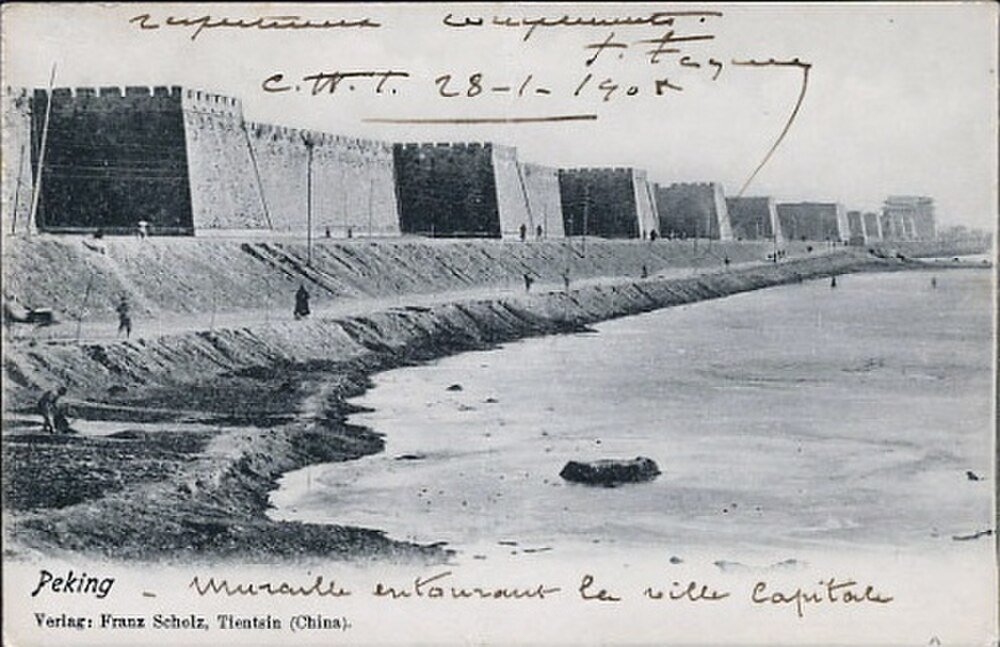 respectueux compliments.
C.H.T. 28-1-190
Peking - Muraille entourant la ville Capitale
Verlag: Franz Scholz, Tientsin (China).